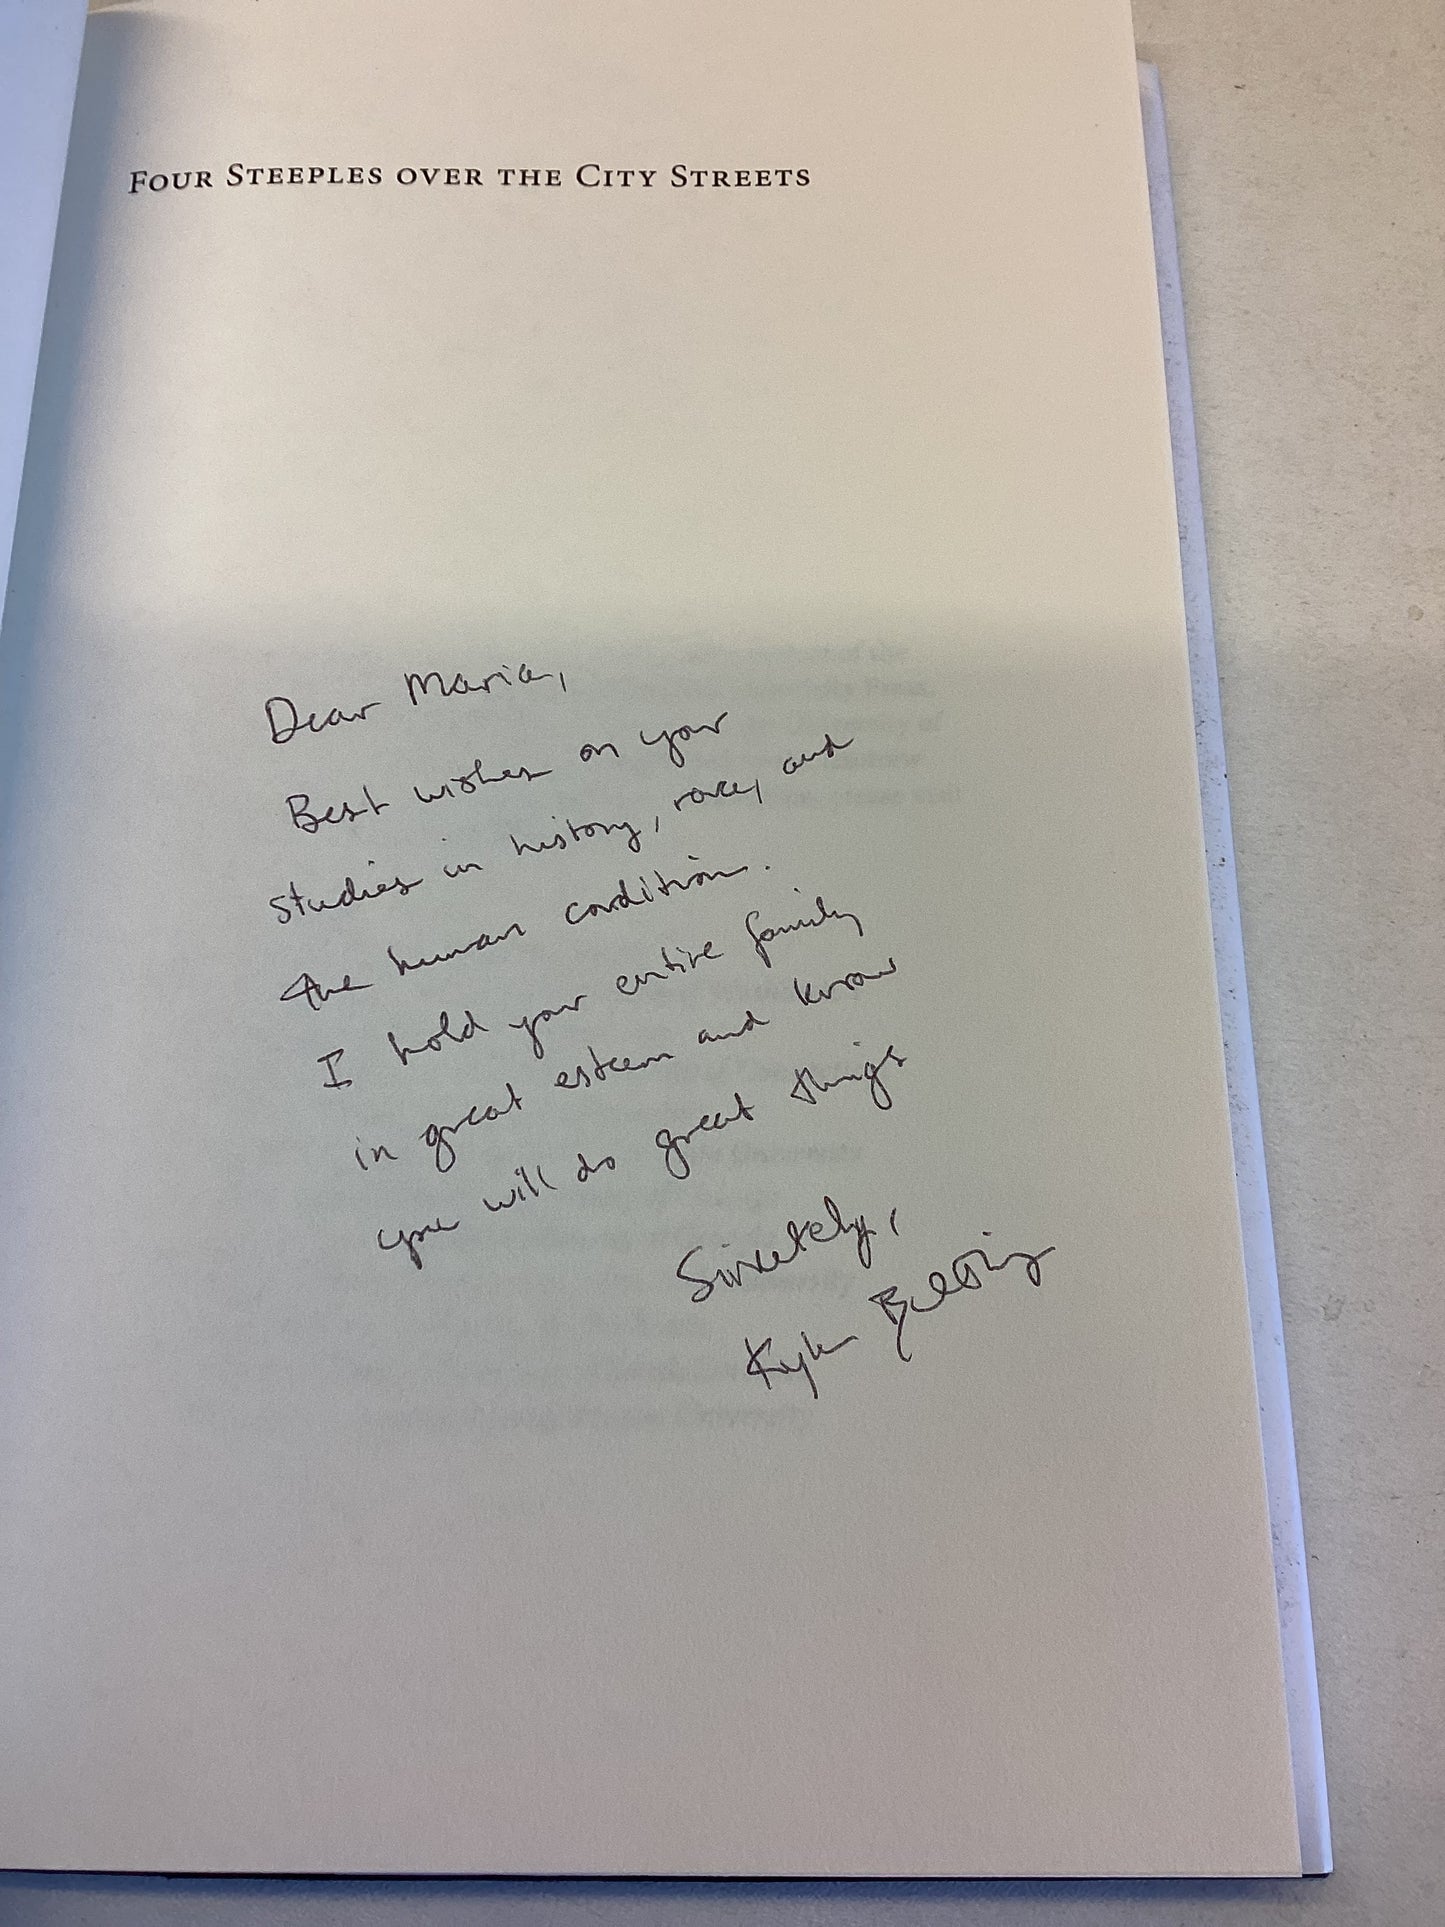 FOUR STEEPLES OVER THE CITY STREETS
Dear Maria,
Best wishes on your
studies in history, race, and
the human condition.
I hold your entire family
in great esteem and know
you will do great things
Sincerely,
Kyle
of the
University
University